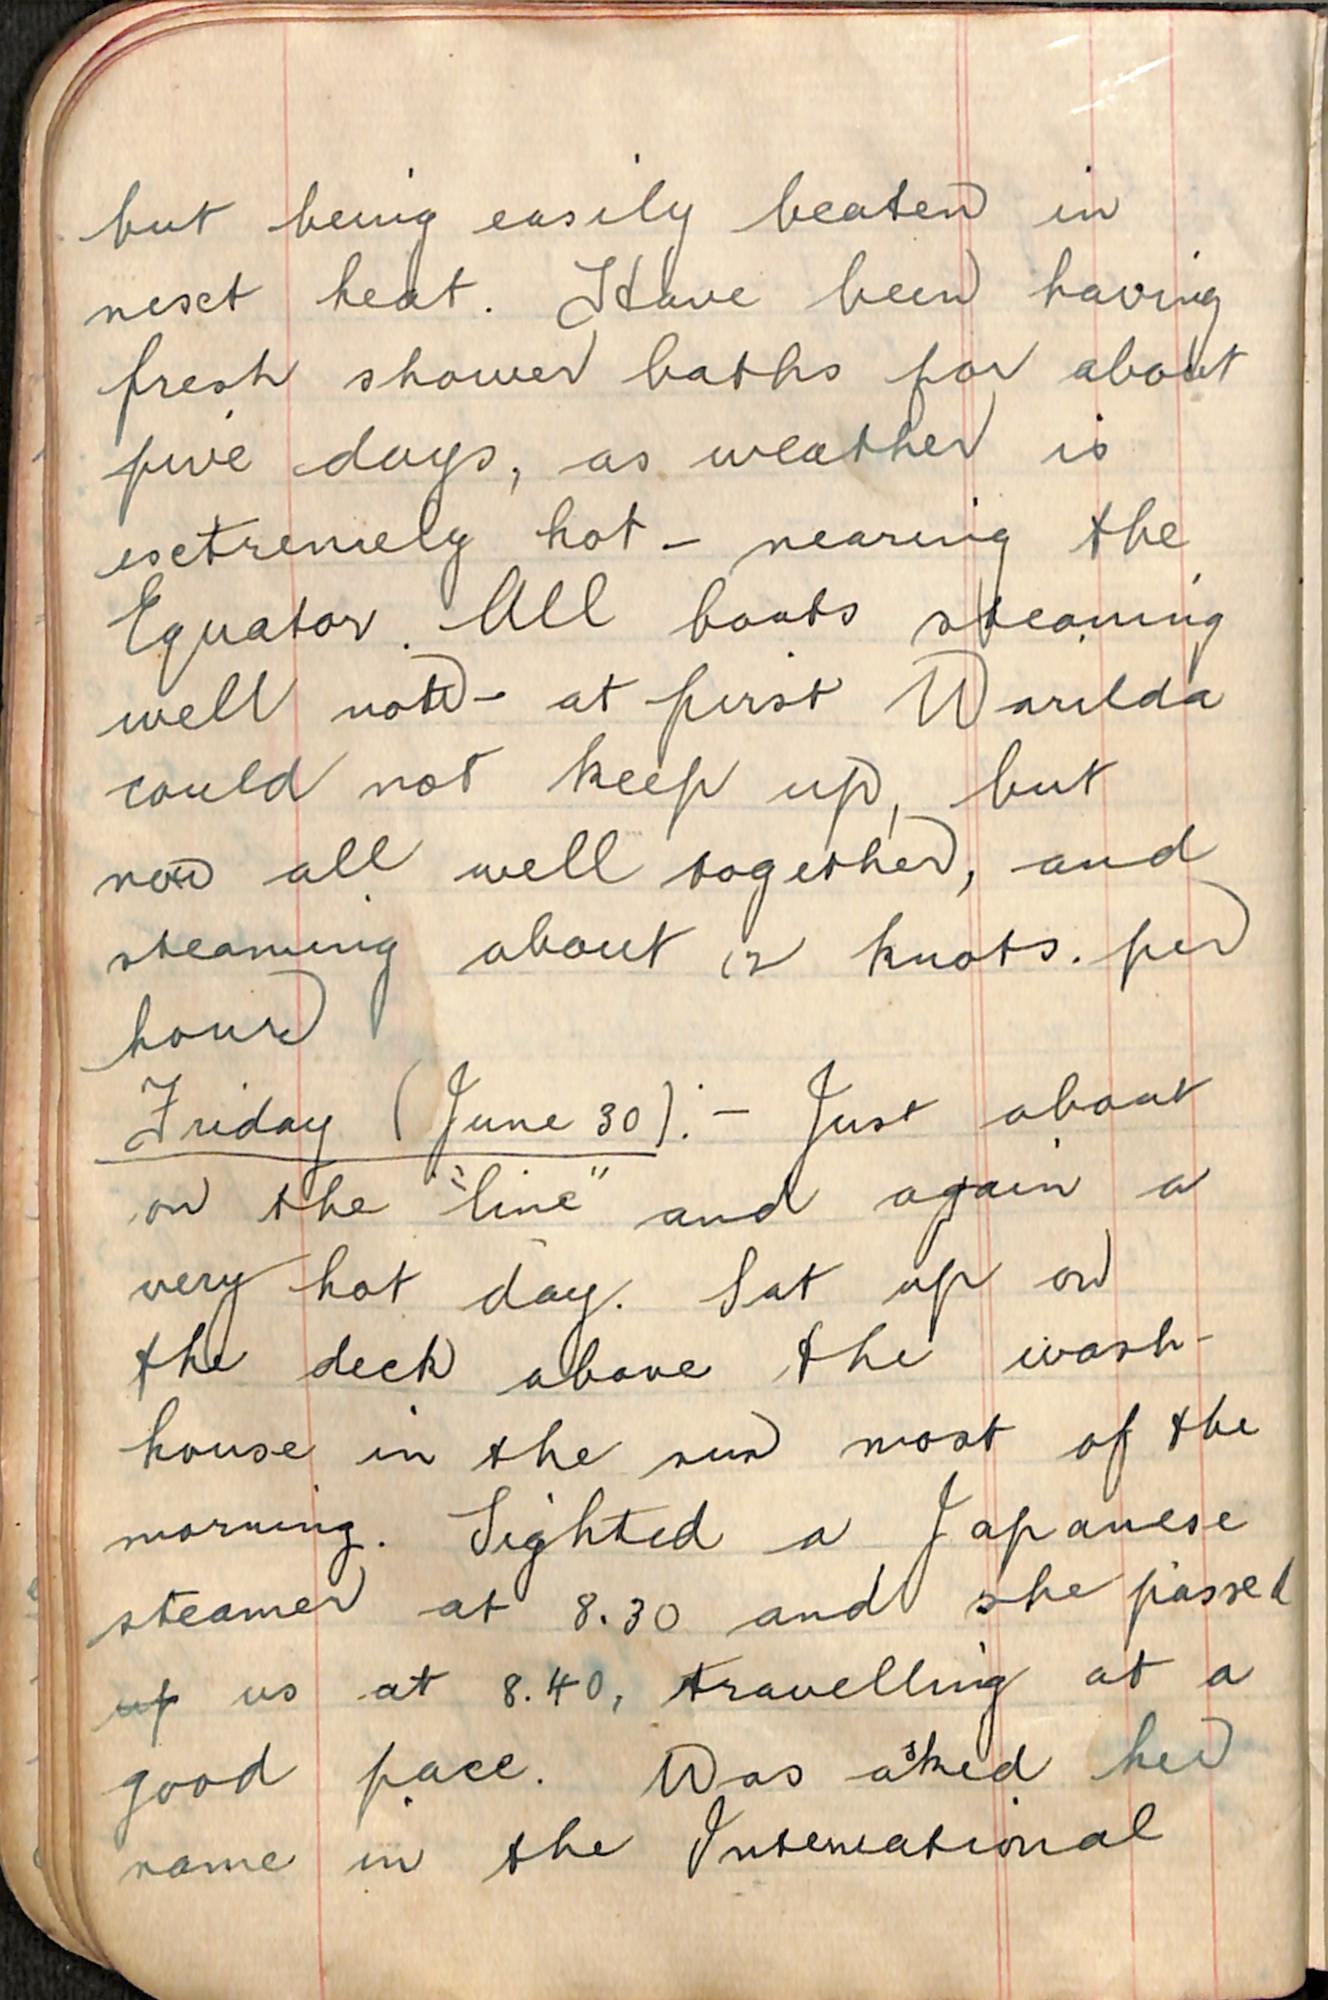 but being easily beaten in
next heat. Have been having
fresh shower baths for about
five days, as weather is
extremely hot - nearing the
Equator. All boats steaming
well now - at first Warilda
could not keep up, but
now all well together, and
steaming about 12 knots. per
hour
Friday (June 30):- Just about
on the "line" and again a
very hot day. Sat up on
the deck above the wash-
house in the sun most of the
morning. Sighted a Japanese
steamer at 8.30 and she passed
up us at 8.40, travelling at a
good pace. Was asked her
name in the International